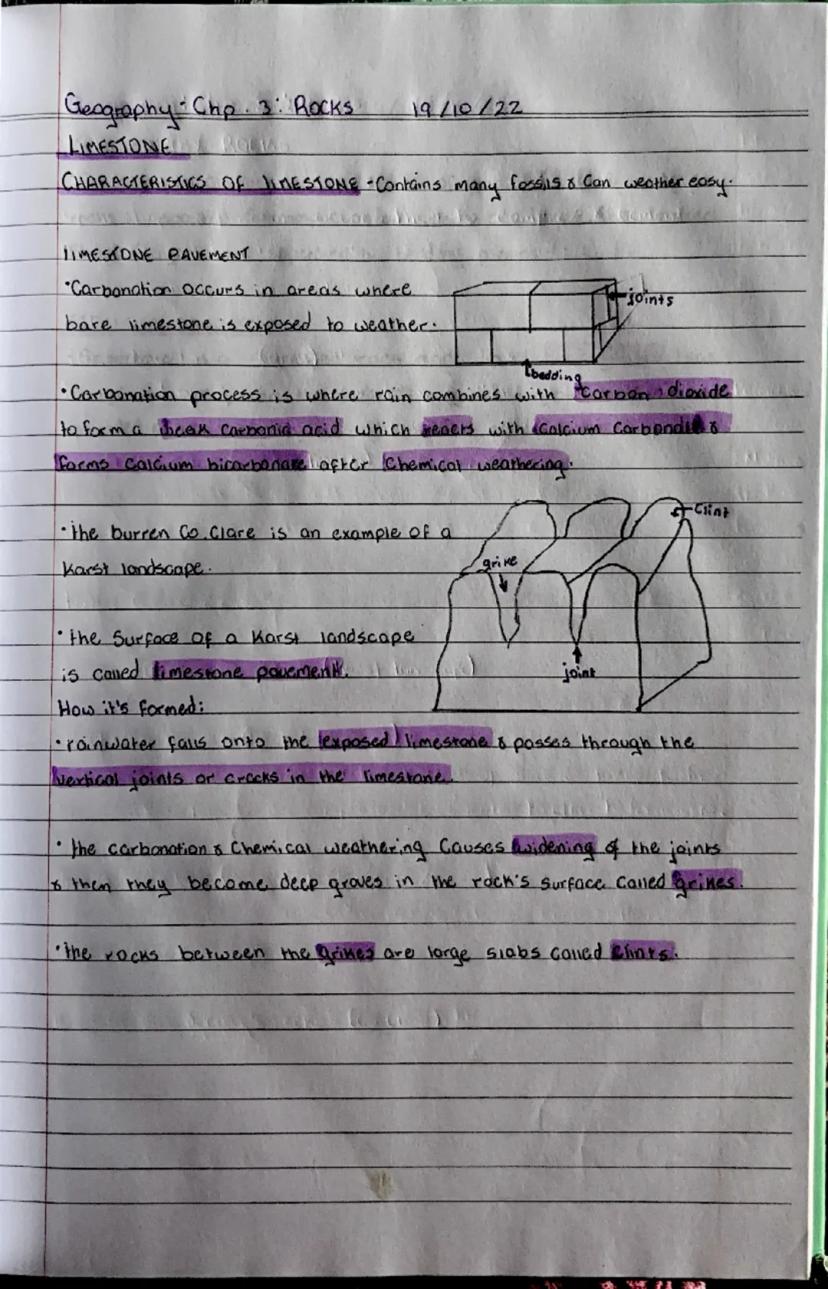 Geography - Chp. 3: Rocks 19/10/22
LIMESTONE
CHARACTERISTICS OF LIMESTONE - Contains many fossils & Can weather easy.
LIMESTONE PAVEMENT
• Carbonation occurs in areas where
joints
bare limestone is exposed to weather.
bedding
• Carbonation process is where rain combines with carbon dioxide
to form a weak carbonic acid which reacts with Calcium Carbonate &
forms calcium bicarbonate after Chemical weathering.
Clint
• the burren Co. Clare is an example of a
grike
Karst landscape.
• the Surface of a Karst landscape
is called limestone pavement.
joint
How it's formed:
• rainwater falls onto the exposed limestone & passes through the
vertical joints or cracks in the limestone.
• the carbonation & Chemical weathering Causes widening of the joints
& then they become deep groves in the rock's surface Called grikes.
• the rocks between the grikes are large slabs called clints.